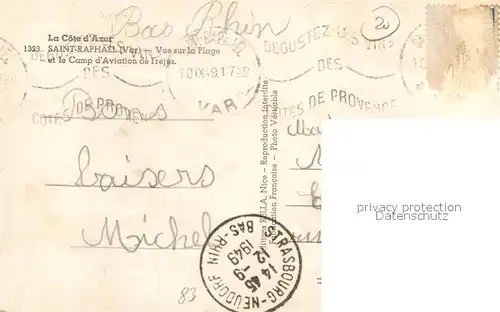 Bas Rhin
20
La Côte d'Azur
1323. SAINT-RAPHAËL (Var) — Vue sur la Plage
et le Camp d'Aviation de Fréjus.
DES
COTES DE PROVENCE
10 IX 49
VAR
DEGUSTEZ LES VINS
DES
COTES DE PROVENCE
Bons
baisers
Michel
Editions RELLA, Nice - Reproduction interdite
Fabrication Française - Photo Véritable
privacy protection
Datenschutz
STRASBOURG-NEUDORF
BAS-RHIN
14 45
12 9
1949
83